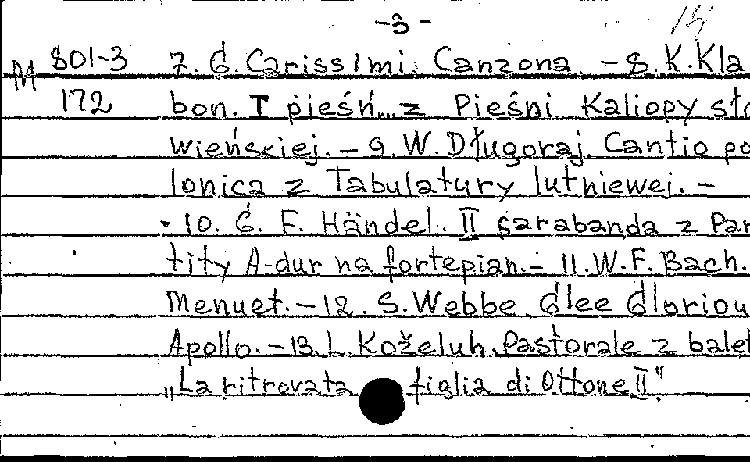 -3-
M 801-3 7. G. Carissimi. Canzona. - 8. K. Kla
172 bon. I pieśń... z Pieśni Kaliopy sło
wieńskiej. - 9. W. Długoraj. Cantio po
lonica z Tabulatury lutniewej. -
- 10. G. F. Händel. II sarabanda z Par
tity A-dur na fortepian. - 11. W. F. Bach.
Menuet. - 12. S. Webbe. Glee Gloriou
Apollo. - 13. L. Koželuh. Pastorale z balet
"La ritrovata figlia di Ottone II"